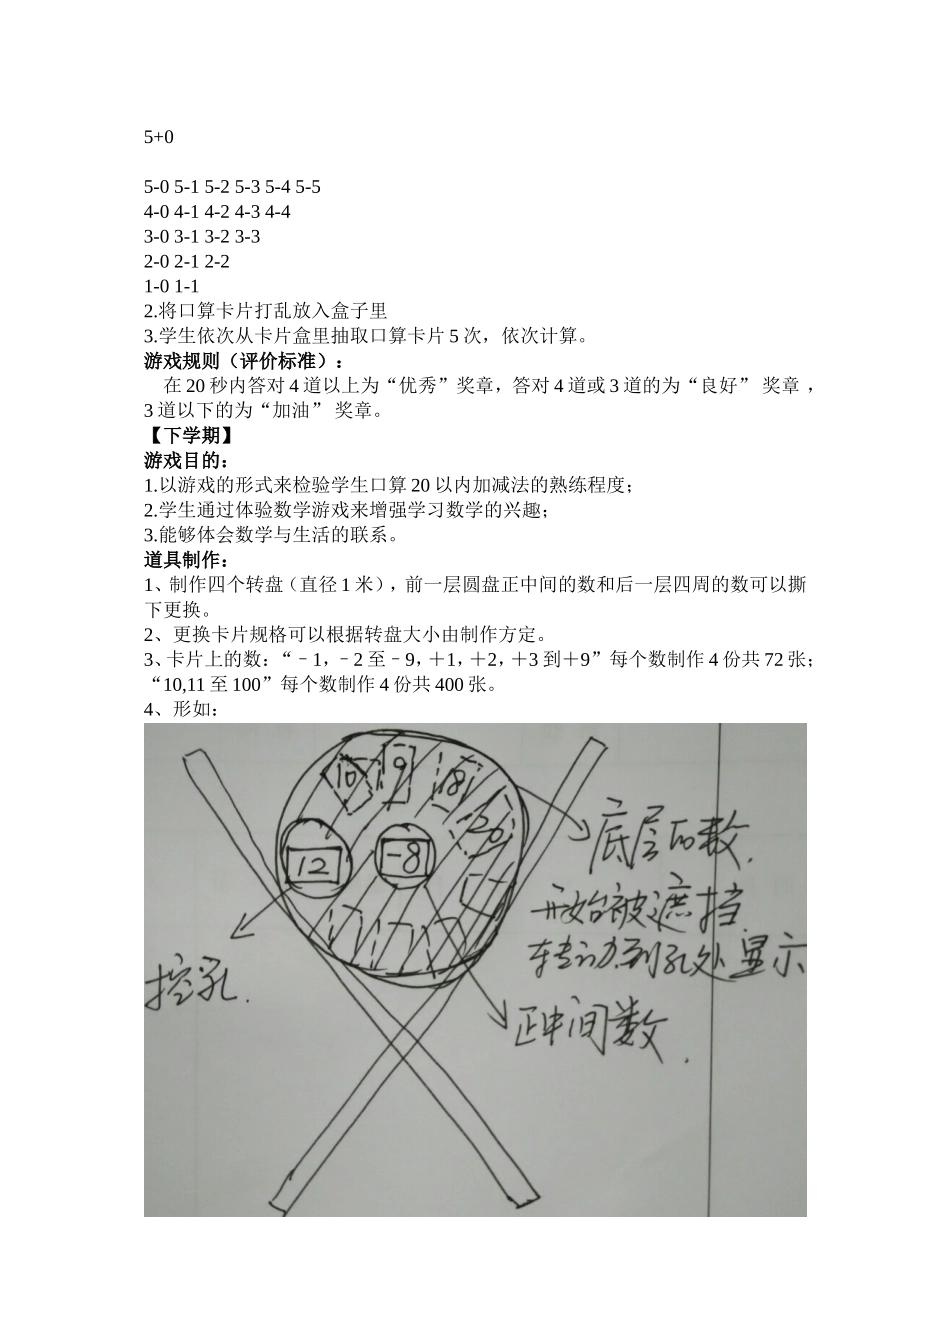 5+0
5-0 5-1 5-2 5-3 5-4 5-5
4-0 4-1 4-2 4-3 4-4
3-0 3-1 3-2 3-3
2-0 2-1 2-2
1-0 1-1
2.将口算卡片打乱放入盒子里
3.学生依次从卡片盒里抽取口算卡片 5 次，依次计算。
游戏规则（评价标准）：
在 20 秒内答对 4 道以上为“优秀”奖章，答对 4 道或 3 道的为“良好” 奖章 ，
3 道以下的为“加油” 奖章。
【下学期】
游戏目的：
1.以游戏的形式来检验学生口算 20 以内加减法的熟练程度；
2.学生通过体验数学游戏来增强学习数学的兴趣；
3.能够体会数学与生活的联系。
道具制作：
1、制作四个转盘（直径 1 米），前一层圆盘正中间的数和后一层四周的数可以撕
下更换。
2、更换卡片规格可以根据转盘大小由制作方定。
3、卡片上的数：“﹣1，﹣2 至﹣9，＋1，＋2，＋3 到＋9”每个数制作 4 份共 72 张；
“10,11 至 100”每个数制作 4 份共 400 张。
4、形如：
10 9 18
20
12 -8
底层的数.
开始被遮挡
转动到孔处显示
挖孔.
正中间数.